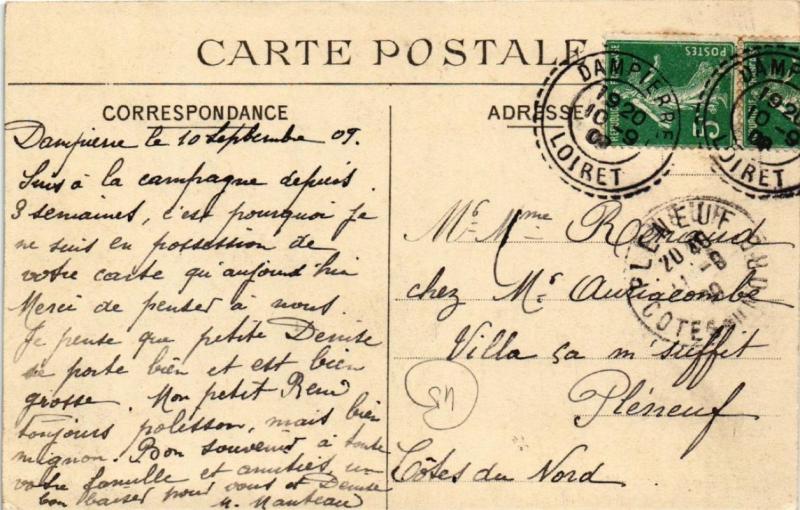 CARTE POSTALE
CORRESPONDANCE
Dampierre le 10 Septembre 09.
Suis à la campagne depuis
3 semaines, c'est pourquoi je
ne suis en possession de
votre carte qu'aujourd'hui
Merci de penser à nous.
Je pense que petite Denise
se porte bien et est bien
grosse. Mon petit René
toujours polisson, mais bien
mignon. Bon souvenir à toute
votre famille et amitiés, un
bon baiser pour vous et Denise
M. Manteau
ADRESSE
POSTES
5c
DAMPIERRE
1920
10 -9
09
LOIRET
DAMP
1920
10 -9
09
LOIRET
PLENEUF
20 40
11 -9
COTES DU N
Mr Mme Renaud
chez Mr
Villa ça m'suffit
Pléneuf
Côtes du Nord